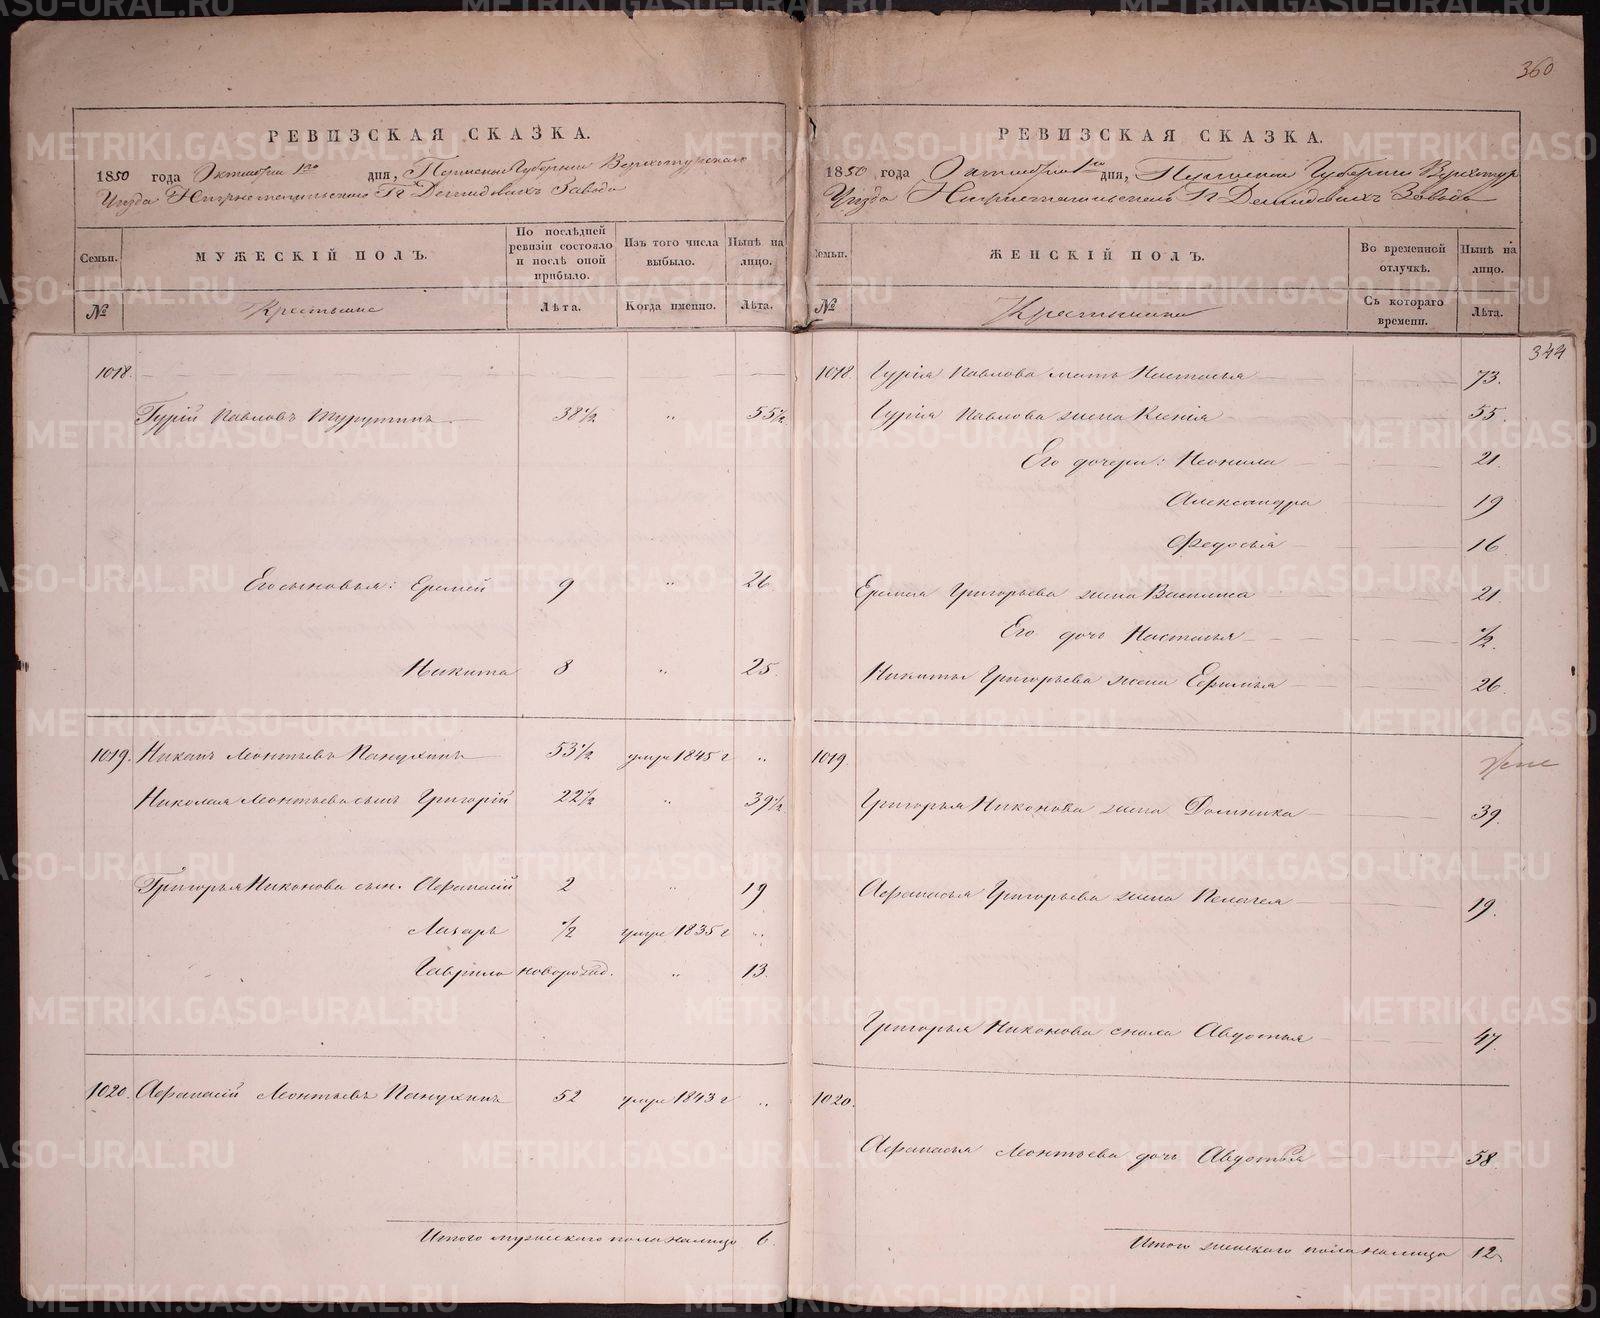 360
РЕВИЗСКАЯ СКАЗКА.
1850 года Октября 1го дня, Пермской Губернии Верхотурскаго
Уезда Нижнетагильскаго Гг Демидовыхъ Завода
Семьи.
МУЖЕСКІЙ ПОЛЪ.
По послѣдней ревизіи состояло и послѣ оной прибыло.
Изъ того числа выбыло.
Нынѣ на лицо.
№
Крестьяне
Лѣта.
Когда именно.
Лѣта.
1018.
Гурій Павловъ 38 1/2 " 55 1/2
Его сыновья: Еремей 9 " 26
Никита 8 " 25.
1019. Никонъ Леонтьевъ Панухинъ 53 1/2 умре 1845 г "
Николая Леонтьева сынъ Григорій 22 1/2 " 39 1/2
Григорья Никонова сын. Афанасій 2 " 19
Лазарь 1/2 умре 1835 г "
Гаврило новорожд. " 13.
1020. Афанасій Леонтьевъ Панухинъ 52 умре 1843 г "
Итого мужескаго пола налицо 6.
РЕВИЗСКАЯ СКАЗКА.
1850 года Октября 1го дня, Пермской Губернии Верхотур
Уезда Нижнетагильскаго Гг Демидовыхъ Завода
Семьи.
ЖЕНСКІЙ ПОЛЪ.
Во временной отлучкѣ.
Нынѣ на лицо.
№
Крестьянки
Съ котораго времени.
Лѣта.
344
1018. Гурія Павлова мать Настасья 73.
Гурія Павлова жена Ксенія 55.
Его дочери: Неонила 21.
Александра 19
Федосья 16
Еремея Григорьева жена Василиса 21.
Его дочь Настасья 1/2.
Никиты Григорьева жена Ефимья 26.
1019.
Григорья Никонова жена Домника 39.
Афанасья Григорьева жена Пелагея 19.
Григорья Никонова сноха Авдотья 47.
1020.
Афанасья Леонтьева дочь Авдотья 58.
Итого женскаго пола налицо 12.
METRIKI.GASO-URAL.RU